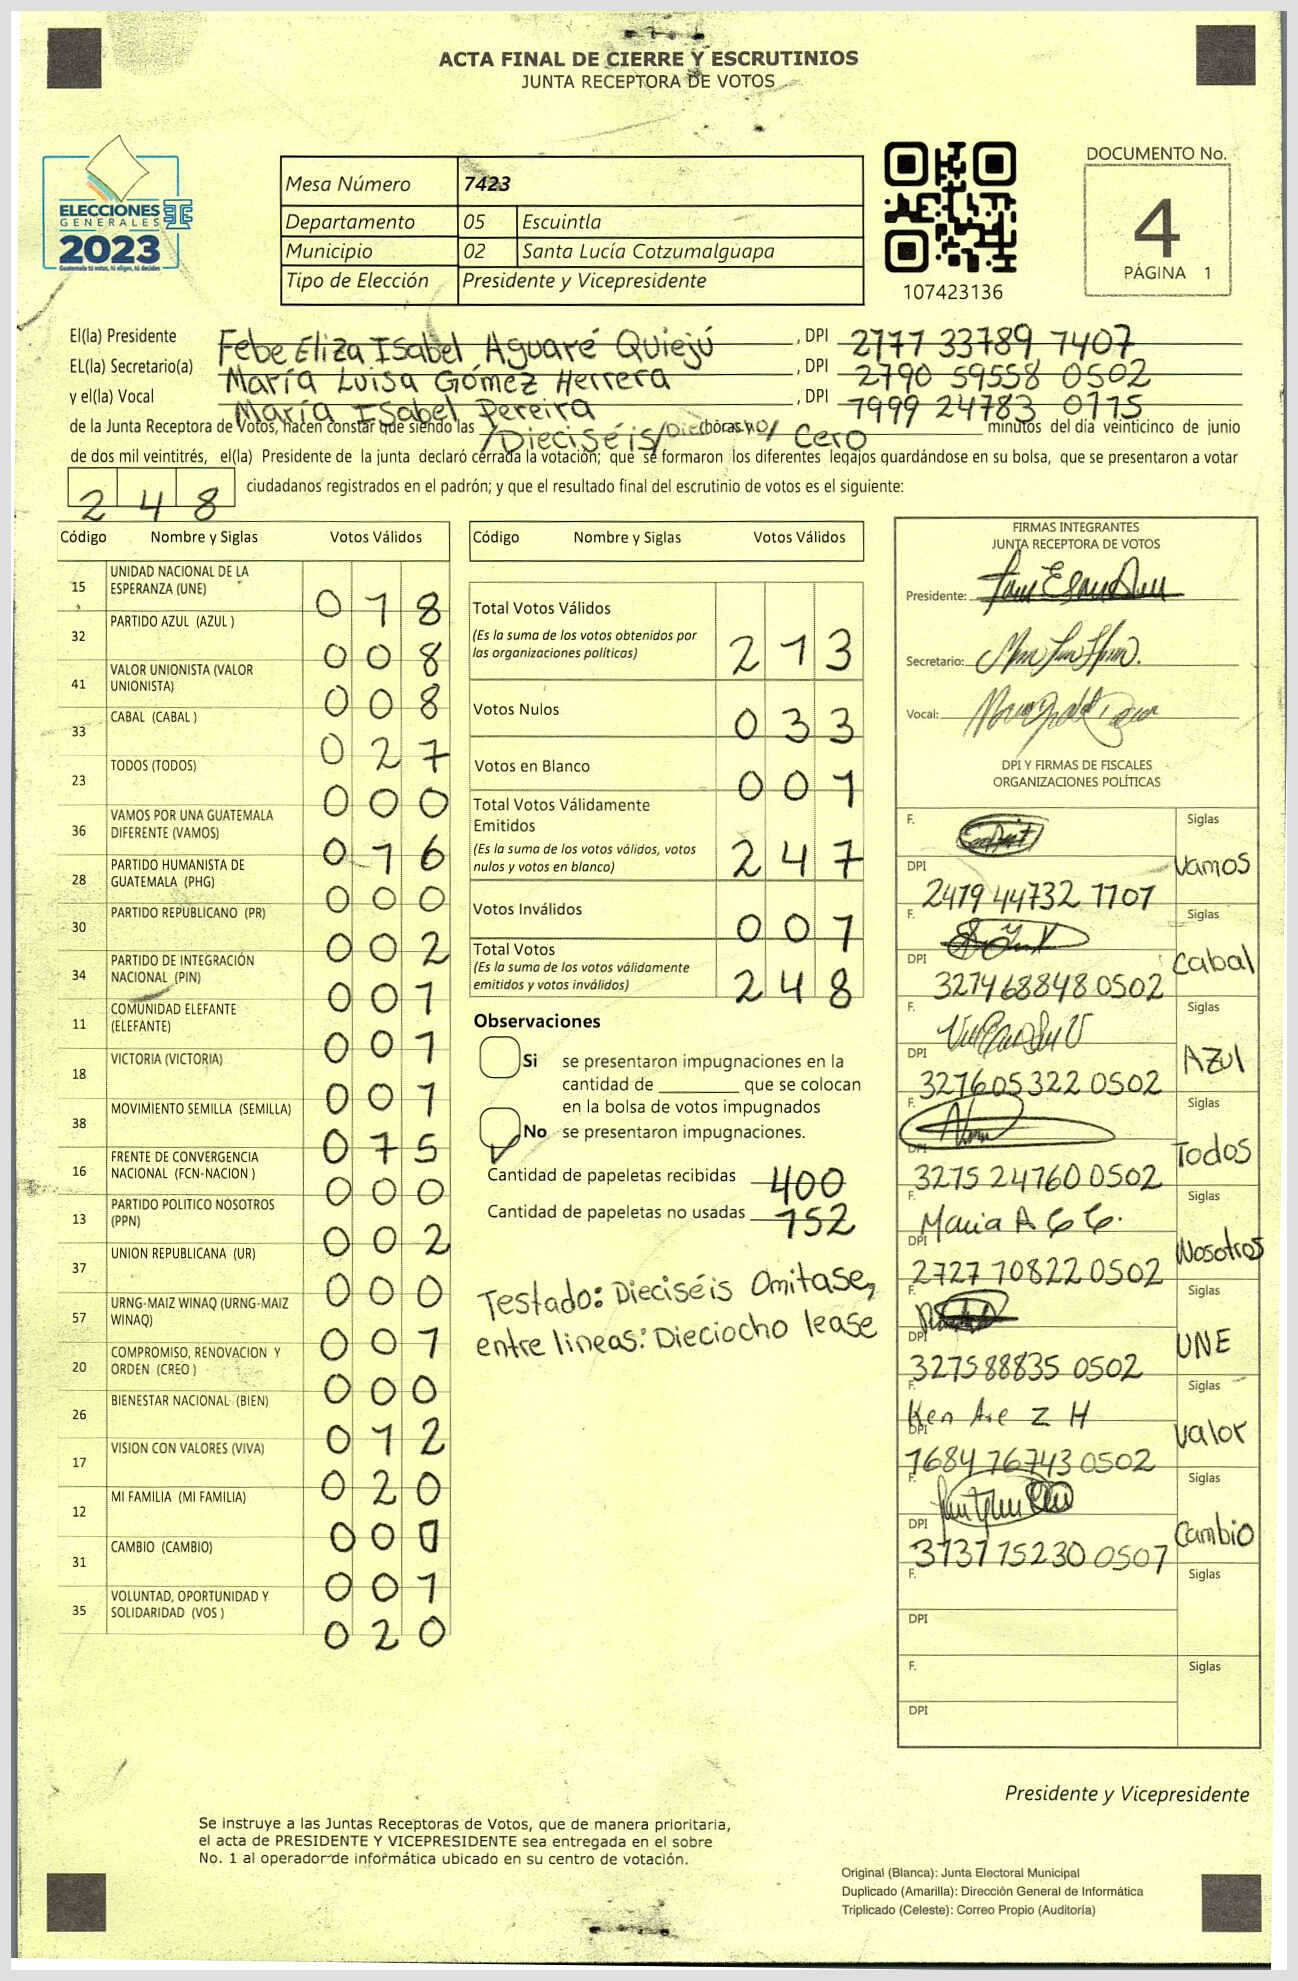 ACTA FINAL DE CIERRE Y ESCRUTINIOS
JUNTA RECEPTORA DE VOTOS
ELECCIONES
GENERALES
2023
Guatemala tú votas, tú eliges, tú decides
Mesa Número 7423
Departamento 05 Escuintla
Municipio 02 Santa Lucía Cotzumalguapa
Tipo de Elección Presidente y Vicepresidente
107423136
DOCUMENTO No.
4
PÁGINA 1
El(la) Presidente Febe Eliza Isabel Aguaré Quiejú, DPI 2177 33789 7407
EL(la) Secretario(a) María Luisa Gómez Herrera, DPI 2790 59558 0502
y el(la) Vocal María Isabel Pereira, DPI 7999 24783 0775
de la Junta Receptora de Votos, hacen constar que siendo las /Dieciséis/ horas y Cero minutos del día veinticinco de junio
de dos mil veintitrés, el(la) Presidente de la junta declaró cerrada la votación; que se formaron los diferentes legajos guardándose en su bolsa, que se presentaron a votar
248 ciudadanos registrados en el padrón; y que el resultado final del escrutinio de votos es el siguiente:
Código Nombre y Siglas Votos Válidos
15 UNIDAD NACIONAL DE LA ESPERANZA (UNE) 018
32 PARTIDO AZUL (AZUL ) 008
41 VALOR UNIONISTA (VALOR UNIONISTA) 008
33 CABAL (CABAL ) 027
23 TODOS (TODOS) 000
36 VAMOS POR UNA GUATEMALA DIFERENTE (VAMOS) 016
28 PARTIDO HUMANISTA DE GUATEMALA (PHG) 000
30 PARTIDO REPUBLICANO (PR) 002
34 PARTIDO DE INTEGRACIÓN NACIONAL (PIN) 001
11 COMUNIDAD ELEFANTE (ELEFANTE) 001
18 VICTORIA (VICTORIA) 001
38 MOVIMIENTO SEMILLA (SEMILLA) 075
16 FRENTE DE CONVERGENCIA NACIONAL (FCN-NACION ) 000
13 PARTIDO POLITICO NOSOTROS (PPN) 002
37 UNION REPUBLICANA (UR) 000
57 URNG-MAIZ WINAQ (URNG-MAIZ WINAQ) 001
20 COMPROMISO, RENOVACION Y ORDEN (CREO ) 000
26 BIENESTAR NACIONAL (BIEN) 012
17 VISION CON VALORES (VIVA) 020
12 MI FAMILIA (MI FAMILIA) 00
31 CAMBIO (CAMBIO) 001
35 VOLUNTAD, OPORTUNIDAD Y SOLIDARIDAD (VOS ) 020
Código Nombre y Siglas Votos Válidos
Total Votos Válidos 213
(Es la suma de los votos obtenidos por
las organizaciones políticas)
Votos Nulos 033
Votos en Blanco 001
Total Votos Válidamente
Emitidos 247
(Es la suma de los votos válidos, votos
nulos y votos en blanco)
Votos Inválidos 001
Total Votos 248
(Es la suma de los votos válidamente
emitidos y votos inválidos)
Observaciones
Si se presentaron impugnaciones en la
cantidad de ________ que se colocan
en la bolsa de votos impugnados
No se presentaron impugnaciones.
Cantidad de papeletas recibidas 400
Cantidad de papeletas no usadas 152
Testado: Dieciséis Omitase,
entre lineas: Dieciocho lease
FIRMAS INTEGRANTES
JUNTA RECEPTORA DE VOTOS
Presidente:
Secretario:
Vocal:
DPI Y FIRMAS DE FISCALES
ORGANIZACIONES POLÍTICAS
F. Siglas Vamos
DPI 2419 44732 1101
F. Siglas Cabal
DPI 3274 68848 0502
F. Siglas AZUl
DPI 327605322 0502
F. Siglas Todos
DPI 3275 24760 0502
F. Maria A G G. Siglas Nosotros
DPI 2727 10822 0502
F. Siglas UNE
DPI 327588835 0502
F. Siglas Valor
DPI 1684 76743 0502
F. Siglas Cambio
DPI 3737 75230 0507
F. Siglas
DPI
F. Siglas
DPI
Presidente y Vicepresidente
Se instruye a las Juntas Receptoras de Votos, que de manera prioritaria,
el acta de PRESIDENTE Y VICEPRESIDENTE sea entregada en el sobre
No. 1 al operador de informática ubicado en su centro de votación.
Original (Blanca): Junta Electoral Municipal
Duplicado (Amarilla): Dirección General de Informática
Triplicado (Celeste): Correo Propio (Auditoría)